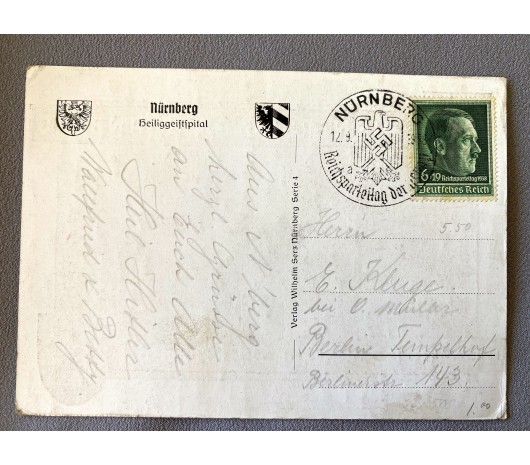 Nürnberg
Heiliggeistspital
Aus N'berg
herzl. Grüße
an Euch Alle
Heil Hitler
Waltfried u. Betty
Verlag Wilhelm Serz Nürnberg Serie 4
NÜRNBERG
12.9.
Reichsparteitag der
6+19 Reichsparteitag 1938
Deutsches Reich
5.50
Herrn
E. Kluge.
bei O. Müller
Berlin Tempelhof
Berlinerstr 143.
1.00